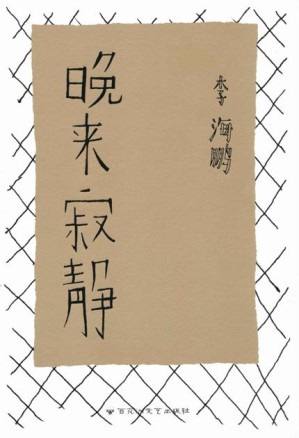 晚来寂静
李海鹏
百花文艺出版社